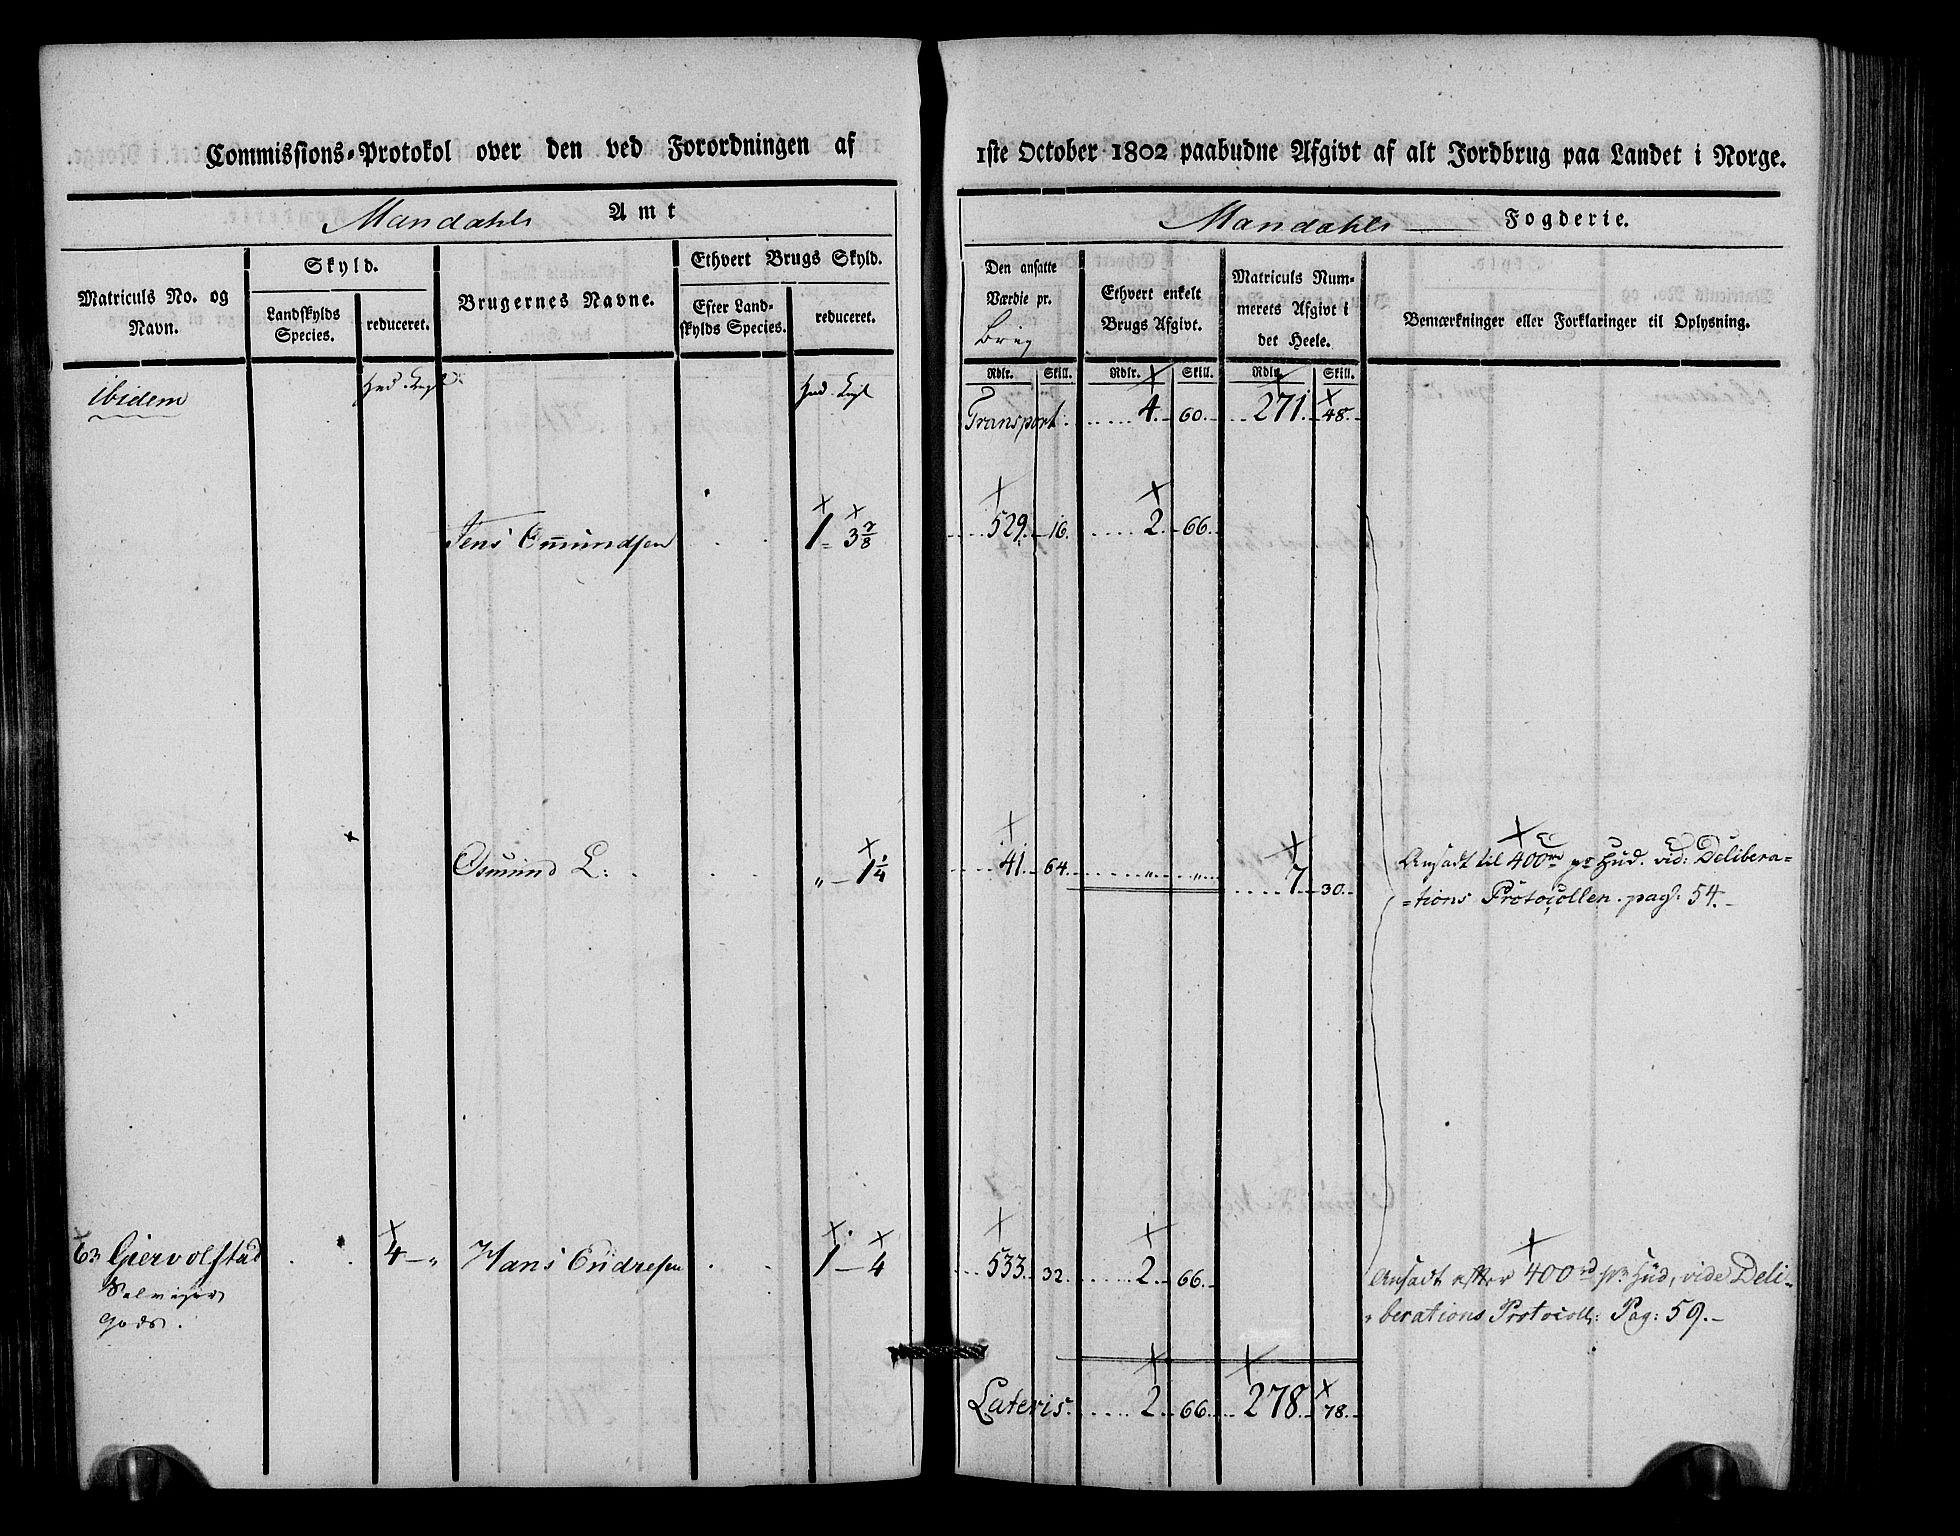 Commissions-Protokol over den ved Forordningen af
1ste October 1802 paabudne Afgivt af alt Jordbrug paa Landet i Norge.
Mandahls Amt
Mandahls Fogderie.
Matriculs No. og Navn.
Skyld.
Landskylds Species.
reduceret.
Brugernes Navne.
Ethvert Brugs Skyld.
Efter Landskylds Species.
reduceret.
Den ansatte Værdie pr. Brug
Ethvert enkelt Brugs Afgivt.
Matriculs Nummerets Afgivt i det Heele.
Bemærkninger eller Forklaringer til Oplysning.
Rdlr. Skill. Rdlr. Skill. Rdlr. Skill.
ibidem
Transport 4. 60. 271. 48.
Jens Omundsen 1 - 3 7/8 529. 16. 2. 66.
Osmund L: „ - 1 1/4 41. 64. „ „ 7. 30.
Ansadt til 400rd pr Hud. vid: Delibera=
=tions Protocollen. pag: 54.-
63 Gjervolstad 4 - „ Hans Endresen 1 - 4 533. 32. 2. 66.
gods.
Ansadt efter 400rd pr Hud, vide Deli-
berations Protocoll: Pag: 59.-
Lateris. 2. 66. 278. 78.